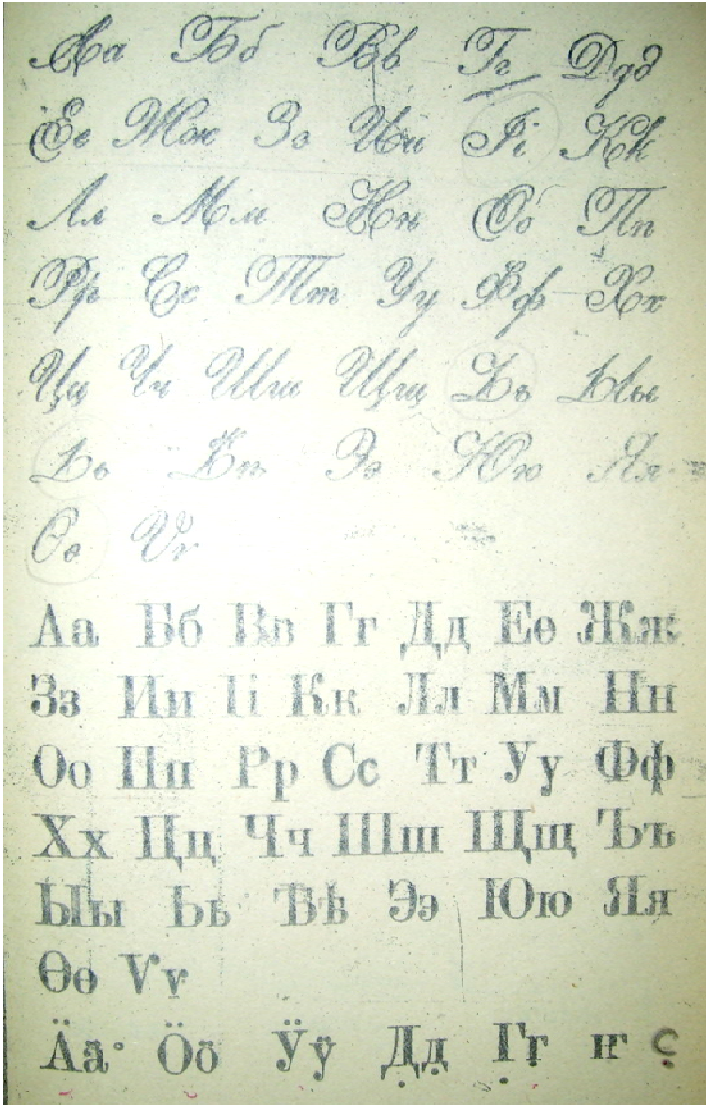 Аа Бб Вв Гг Ддд
Ее Жж Зз Ии Іі Кк
Лл Мм Нн Оо Пп
Рр Сс Тт Уу Фф Хх
Цц Чч Шш Щщ Ъъ Ыы
Ьь Ѣѣ Ээ Юю Яя
Ѳѳ Ѵѵ
Аа Бб Вв Гг Дд Ее Жж
Зз Ии Іі Кк Лл Мм Нн
Оо Пп Рр Сс Тт Уу Фф
Хх Цц Чч Шш Щщ Ъъ
Ыы Ьь Ѣѣ Ээ Юю Яя
Ѳѳ Ѵѵ
Ӓӓ Ӧӧ Ӱӱ Д̣д̣ Г̣г̣ ҥ